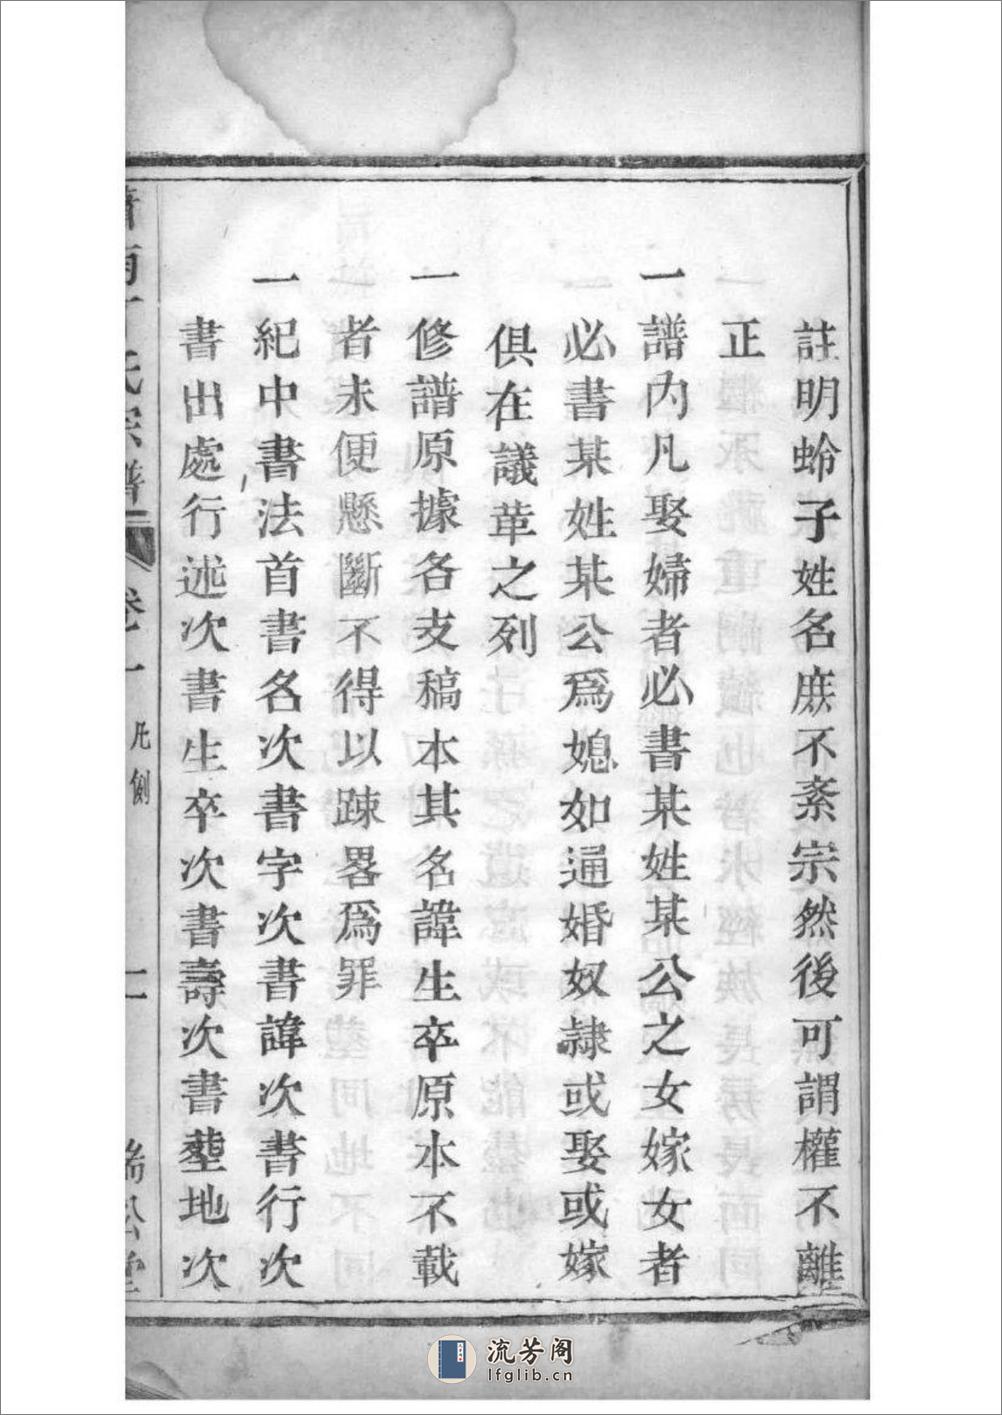 註明蛉子姓名庶不紊宗然後可謂權不離
正
一譜內凡娶婦者必書某姓某公之女嫁女者
必書某姓某公爲媳如通婚奴隸或娶或嫁
俱在議革之列
一修譜原據各支稿本其名諱生卒原本不載
者未便懸斷不得以踈畧爲罪
一紀中書法首書名次書字次書諱次書行次
書出處行述次書生卒次書壽次書塟地次
南丁氏宗譜 卷一 凡例
流芳阁
lfglib.cn